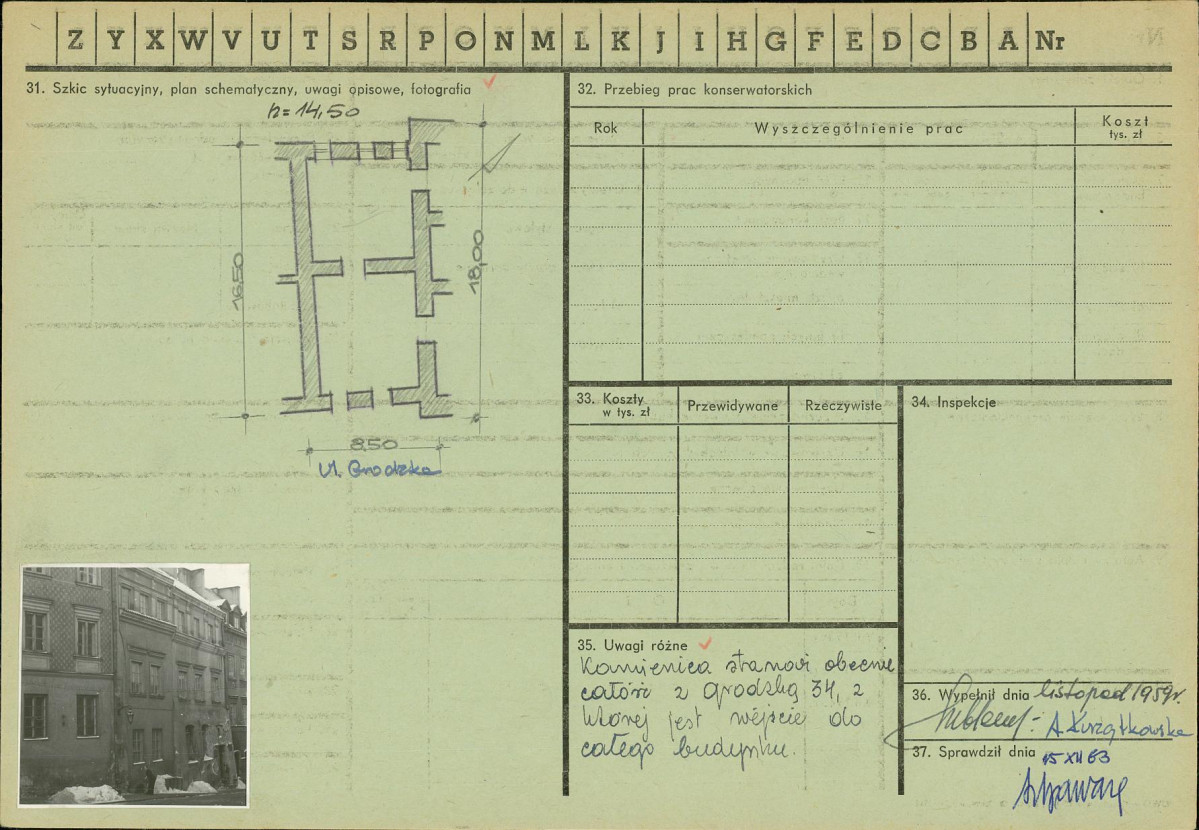 Z Y X W V U T S R P O N M L K J I H G F E D C B A Nr
31. Szkic sytuacyjny, plan schematyczny, uwagi opisowe, fotografia
h = 14,50
16,50
18,00
8,50
Ul. Grodzka
32. Przebieg prac konserwatorskich
Rok
Wyszczególnienie prac
Koszt
tys. zł
33. Koszty
w tys. zł
Przewidywane
Rzeczywiste
34. Inspekcje
35. Uwagi różne
Kamienica stanowi obecnie
całość z Grodzką 34, z
której jest wejście do
całego budynku.
36. Wypełnił dnia listopad 1959r.
A. Kurzątkowska
37. Sprawdził dnia
15 XII 63